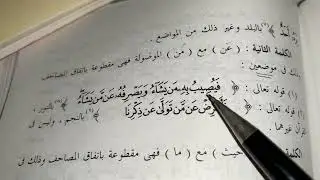 أحد﴾ بالبلد وغير ذلك من المواضع.
الكلمة الثانية : (عن) مع (من) الموصولة فهى مقطوعة باتفاق المصاحف
وذلك فى موضعين :
(١) قوله تعالى : ﴿ فَيُصِيبُ بِهِ مَن يَشَآءُ وَيَصْرِفُهُ عَن مَّن يَشَآءُ ﴾ بالنور ،
(٢) قوله تعالى : ﴿ فَأَعْرِضْ عَن مَّن تَوَلَّىٰ عَن ذِكْرِنَا ﴾ بالنجم ، وليس فى
القرآن غيرهما .
الكلمة حيث) مع (ما) فهى مقطوعة باتفاق المصاحف وذلك فى